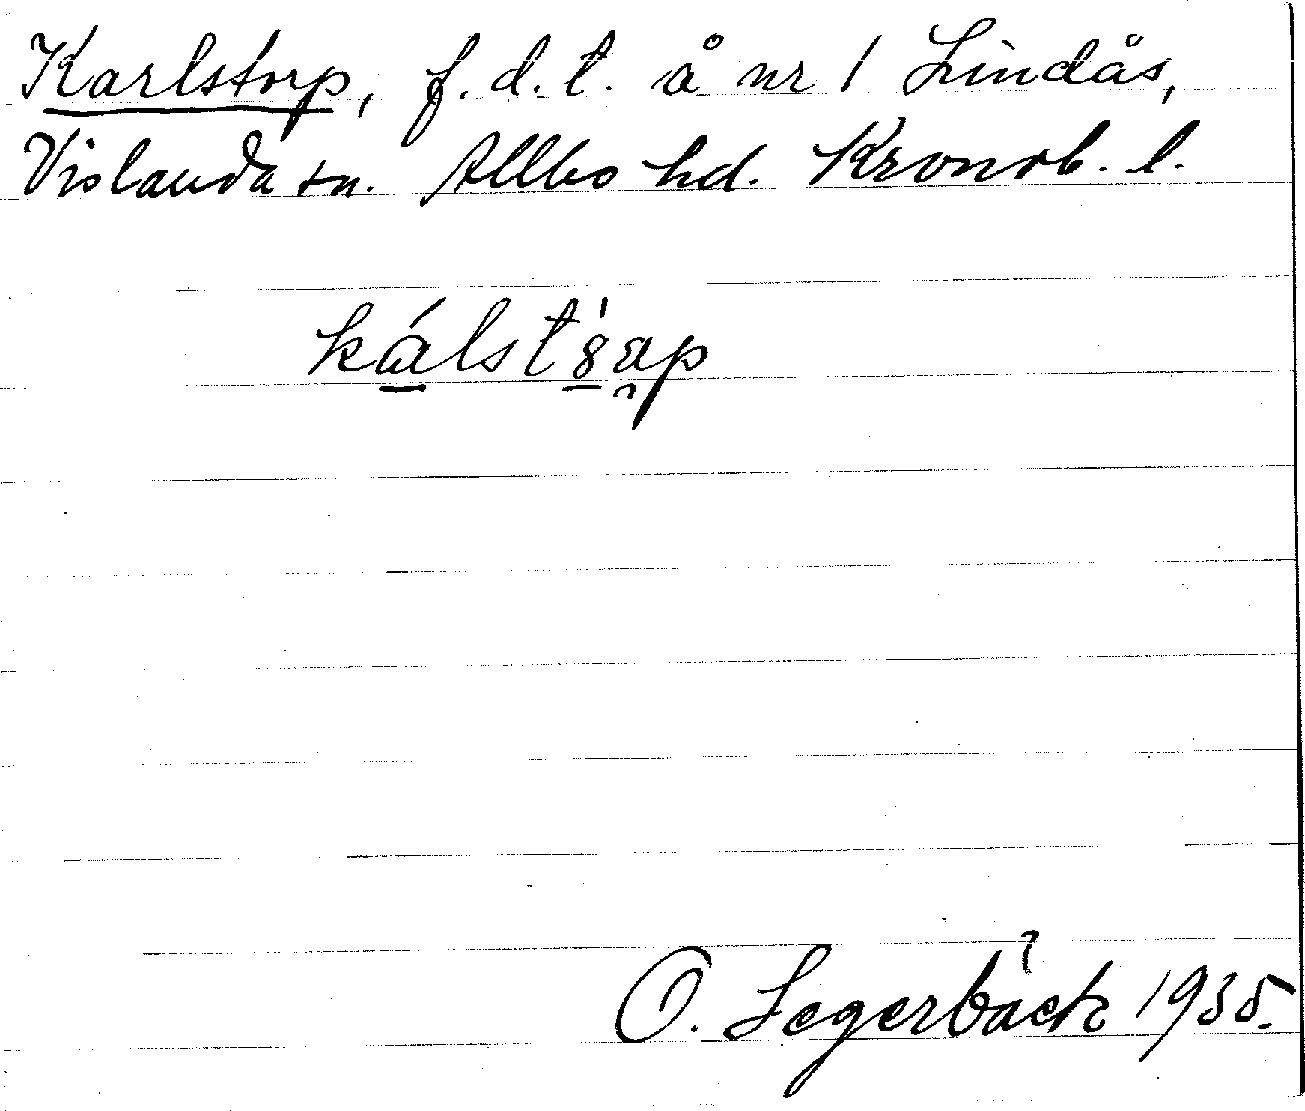 Karlstorp, f.d.t. å nr 1 Lindås,
Vislanda sn. Allbo hd. Kronob. l.
O. Segerbäck 1935.